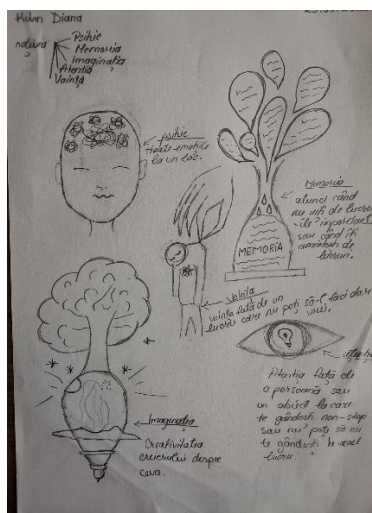 Diana
noțiuni
Psihic
Memoria
Imaginația
Atenția
Voința
psihic
toate emoțiile
la un loc.
Memoria
atunci când
nu uiți de lucru-
rile importante
sau când îți
amintești de
lucruri.
MEMORIA
Voința
voința față de un
lucru care nu poți să-l faci dar
vrei.
Atenția față de
o persoană sau
un obiect la care
te gândești non-stop
sau nu poți să nu
te gândești la acel
lucru.
Imaginația
Creativitatea
creierului despre
ceva.